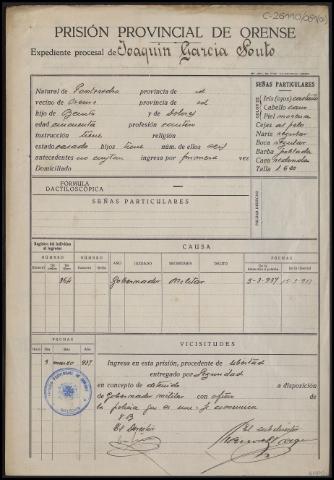 C-26110/089(0)
PRISIÓN PROVINCIAL DE ORENSE
Expediente procesal de Joaquin Garcia Souto
Natural de Pontevedra provincia de id
vecino de Orense provincia de id
hijo de Benito y de Dolores
edad cincuenta profesión cantero
instrucción tiene religión
estado casado hijos tiene núm. de ellos seis
antecedentes no constan ingresa por primera vez
Domiciliado
SEÑAS PARTICULARES
COLORES
Iris (ojos) castaño
Cabello cano
Piel morena
Cejas al pelo
Nariz regular
Boca regular
Barba poblada
Cara redonda
Talla 1'600
FÓRMULA
DACTILOSCÓPICA
SEÑAS PARTICULARES
Registro del individuo
al ingresar
NUMERO
NUMERO
CAUSA
AÑO
JUZGADO
SECRETARIO
DELITO
FECHAS
De la
De la libertad
364
Gobernador Militar
5-3-937
15-3-937
FECHAS
Día
Mes
Año
VICISITUDES
5 marzo 937
Ingresa en esta prisión, procedente de libertad
entregado por Seguridad
en concepto de detenido a disposición
de Gobernador militar con oficio de
la policía que se une. Se comunica
V.B.
El Director
El subdirector